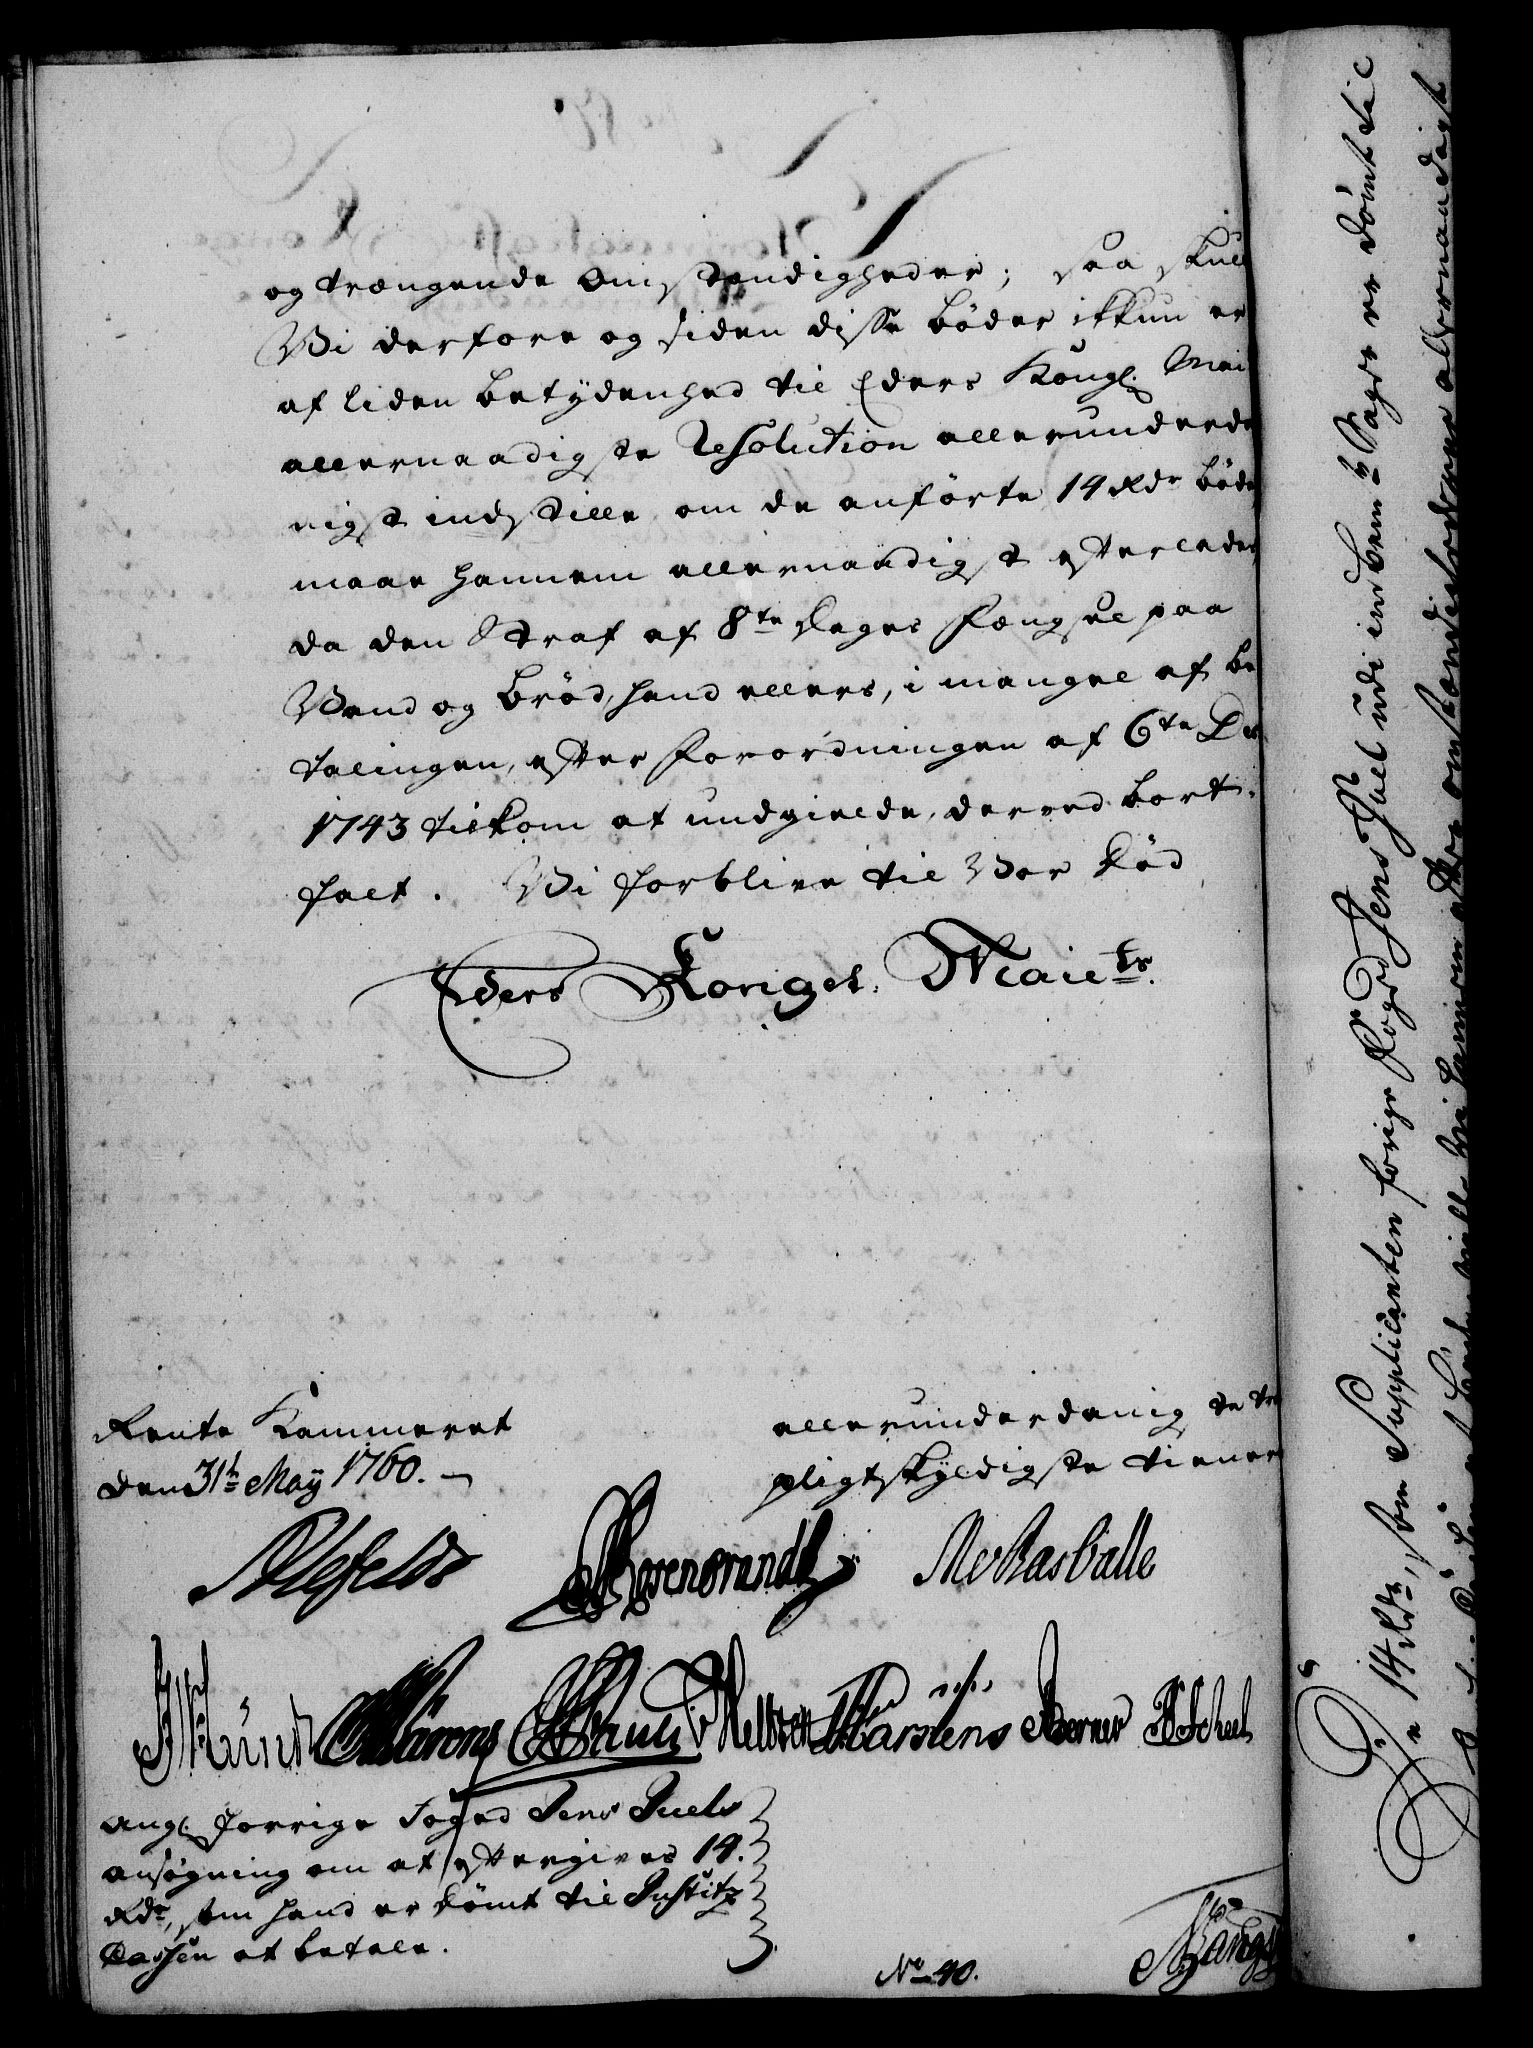 og trængende Omstændigheder; saa skull
Vi derfore og siden disse bøder ikkun er
af liden betydenhed til Eders Kongl. Mai
allernaadigste Resolution allerunderda
nigst indstille om de anførte 14 Rdr bøder
maae hannem allernaadigst efterlades
da den Straf af 8te Dages Fængsel paa
Vand og brød, hand ellers, i mangel af be
talingen, efter Forordningen af 6te De
1743 tilkom at undgielde, derved bort-
falt. Vi forblive til Vor død
Eders Konigel. Maiets.
Rente Kammeret
den 31t May 1760.
allerunderdanig te tro
pligtskyldigste tienere
Alefeldt Rosenbrandt
Karstens Berner Scheel
Angl. forrige Foged Jens Juels
ansøgning om at eftergives 14.
Rdr, som hand er dömt til Justitz
Cassen at betale.
No 40.
De 14 Rdr, som Supplicanten forige Foged Jens Juel udi indbem: Sager er dömt til